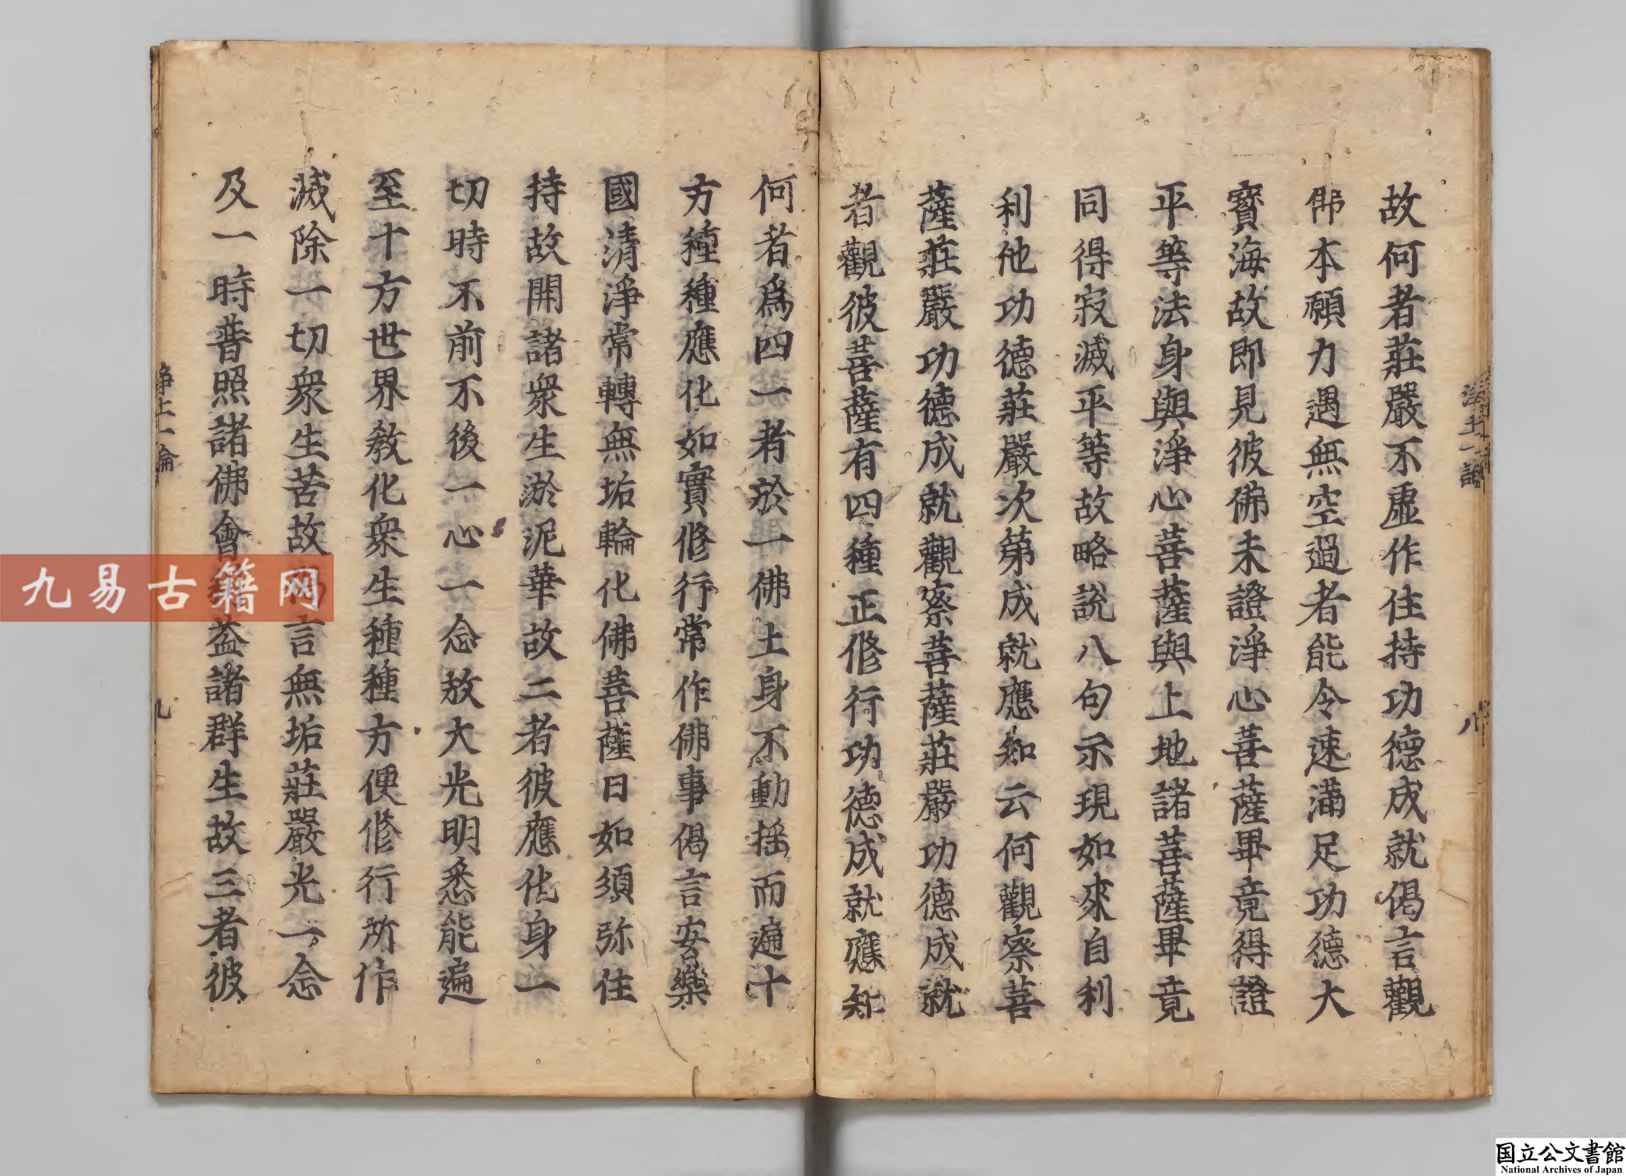 故何者莊嚴不虛作住持功德成就偈言觀
佛本願力遇無空過者能令速滿足功德大
寶海故即見彼佛未證淨心菩薩畢竟得證
平等法身與淨心菩薩與上地諸菩薩畢竟
同得寂滅平等故略說八句示現如來自利
利他功德莊嚴次第成就應知云何觀察菩
薩莊嚴功德成就觀察菩薩莊嚴功德成就
者觀彼菩薩有四種正修行功德成就應知
八
何者爲四一者於一佛土身不動搖而遍十
方種種應化如實修行常作佛事偈言安樂
國清淨常轉無垢輪化佛菩薩日如須弥住
持故開諸衆生淤泥華故二者彼應化身一
切時不前不後一心一念放大光明悉能遍
至十方世界教化衆生種種方便修行所作
滅除一切衆生苦故偈言無垢莊嚴光一念
及一時普照諸佛會利益諸群生故三者彼
淨土論
九
九易古籍网
国立公文書館
National Archives of Japan